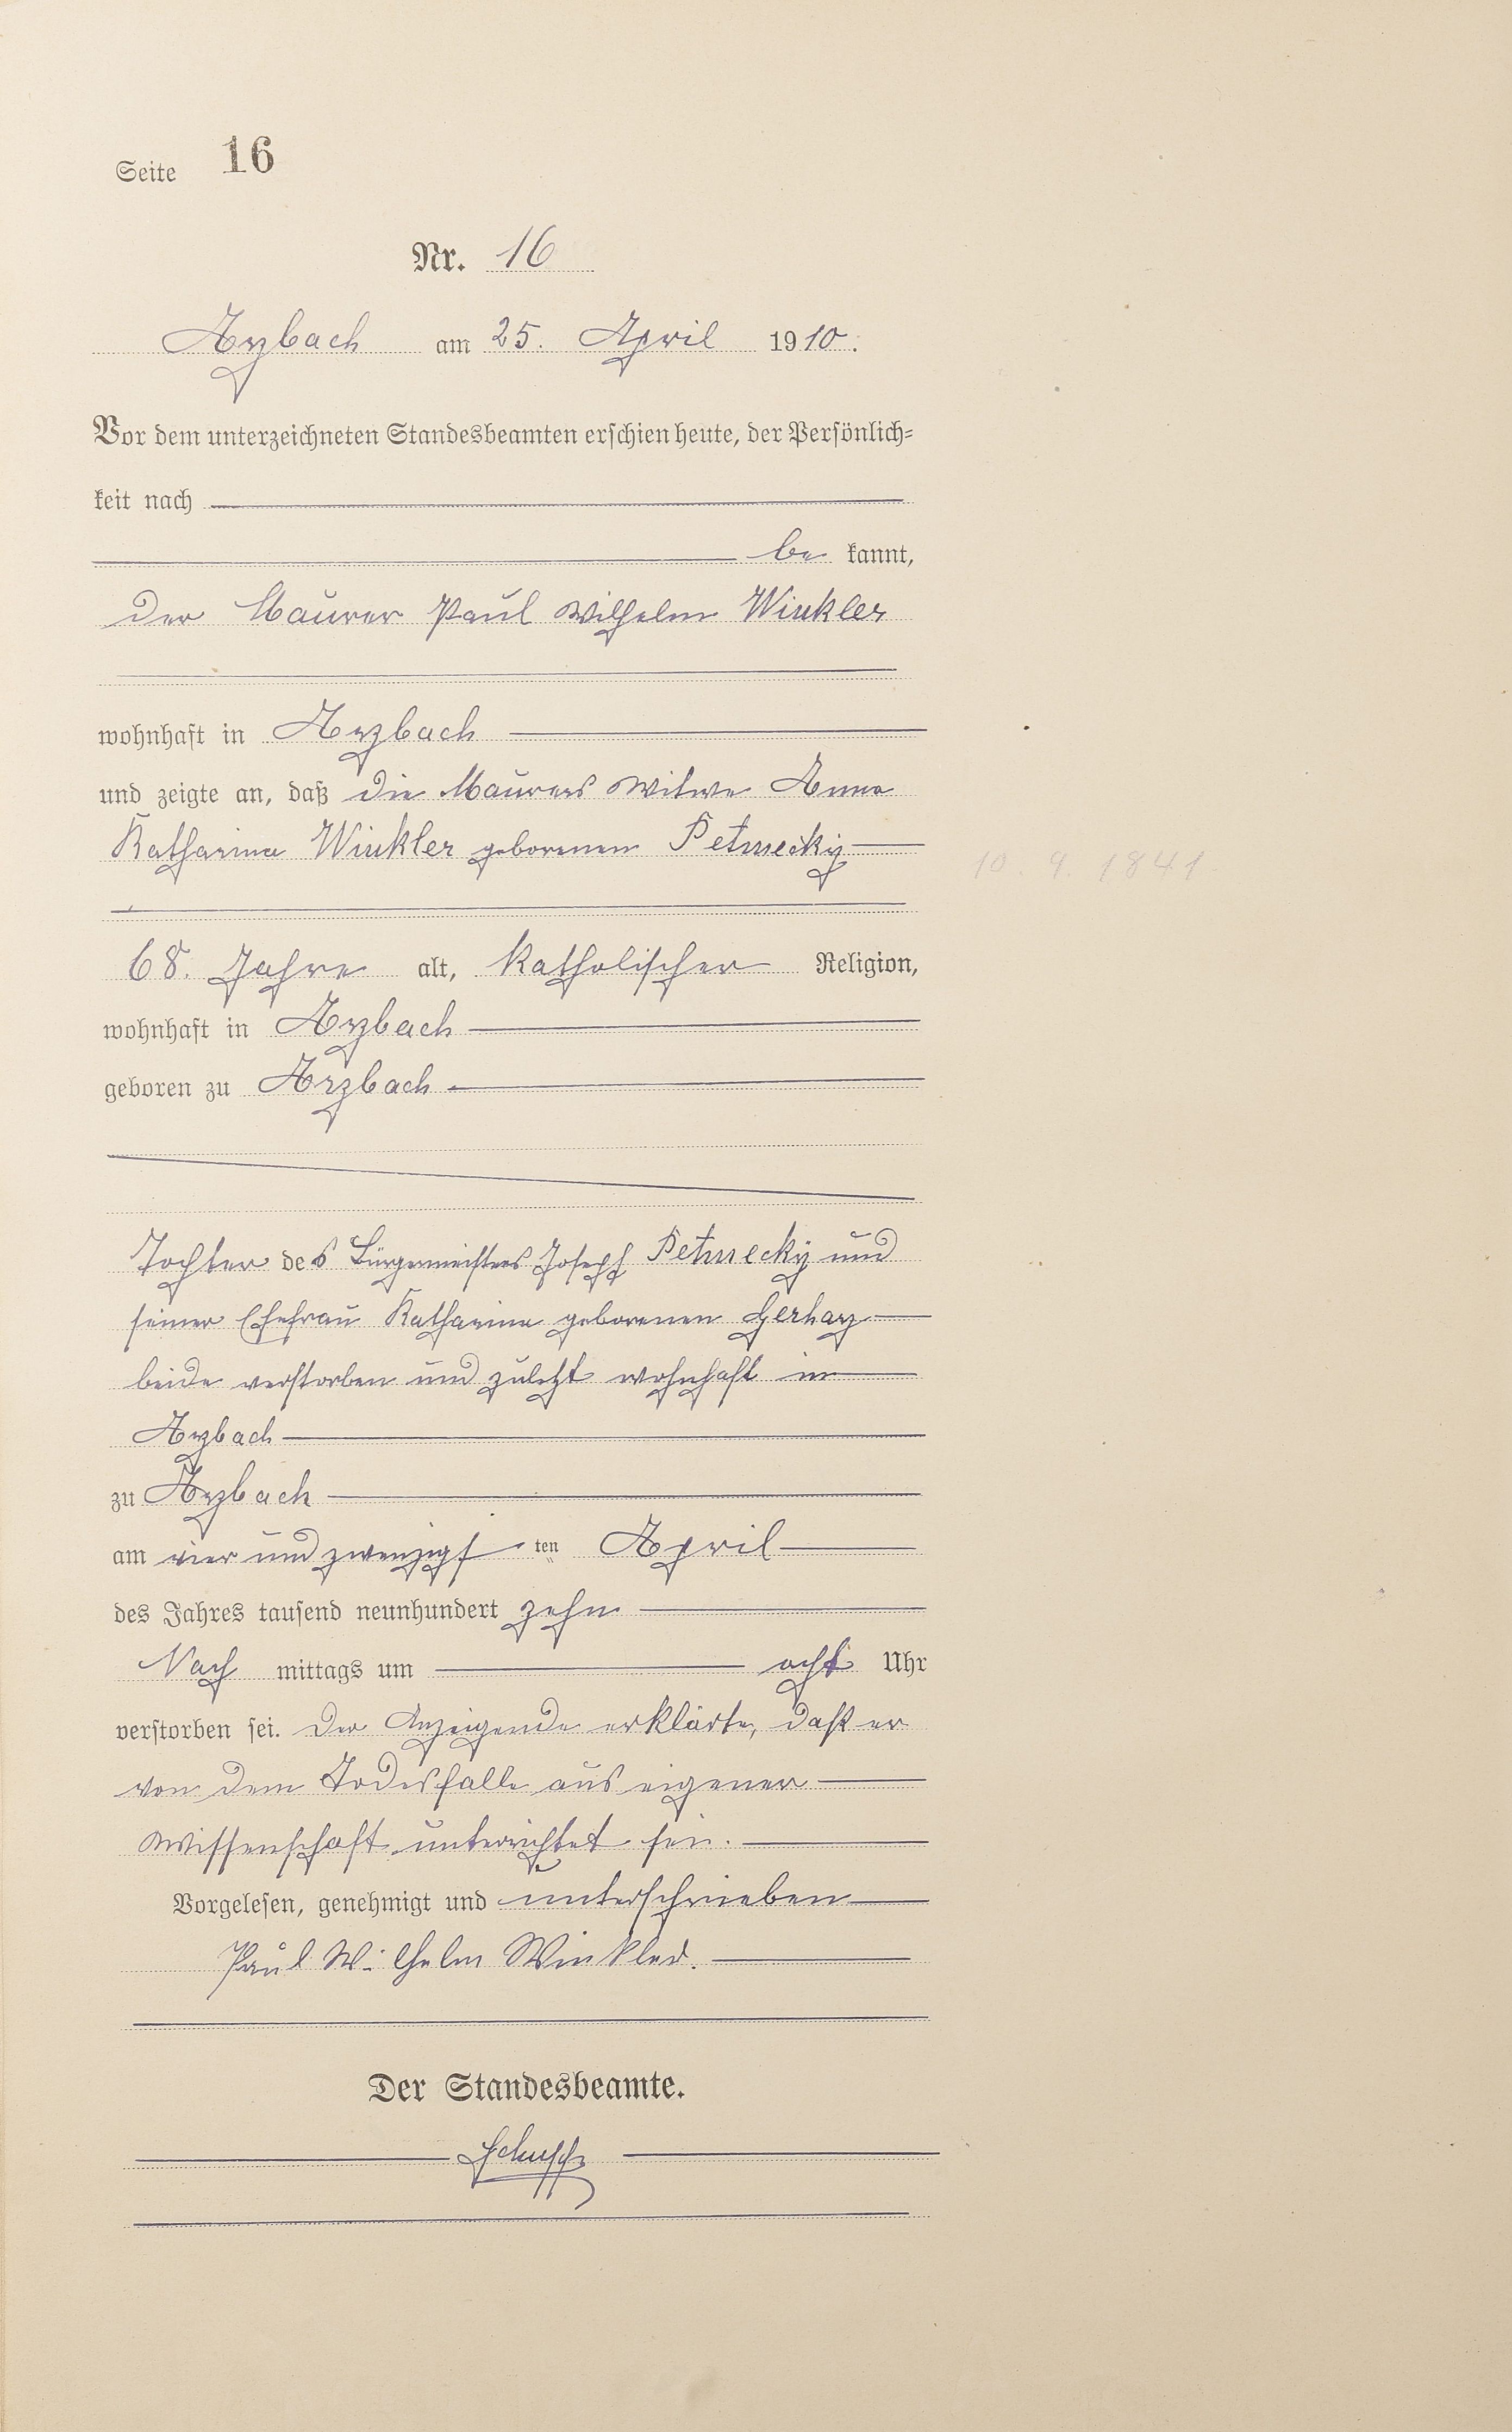 Seite 16
Nr. 16
Arzbach am 25. April 1910.
Vor dem unterzeichneten Standesbeamten erschien heute, der Persönlich-
keit nach
be kannt,
der Maurer Paul Wilhelm Winkler
wohnhaft in Arzbach
und zeigte an, daß die Maurers Witwe Anna
Katharina Winkler geborenen Petmecky
10. 9. 1841
68. Jahre alt, katholischer Religion,
wohnhaft in Arzbach
geboren zu Arzbach
Tochter des Bürgermeisters Joseph Petmecky und
seiner Ehefrau Katharina geborenen Gerharz
beide verstorben und zuletzt wohnhaft in
Arzbach
zu Arzbach
am vier und zwanzigsten April
des Jahres tausend neunhundert zehn
Nach mittags um acht Uhr
verstorben sei. Der Anzeigende erklärte, daß er
von dem Todesfalle aus eigener
Wissenschaft unterrichtet sei.
Vorgelesen, genehmigt und unterschrieben
Paul Wilhelm Winkler.
Der Standesbeamte.